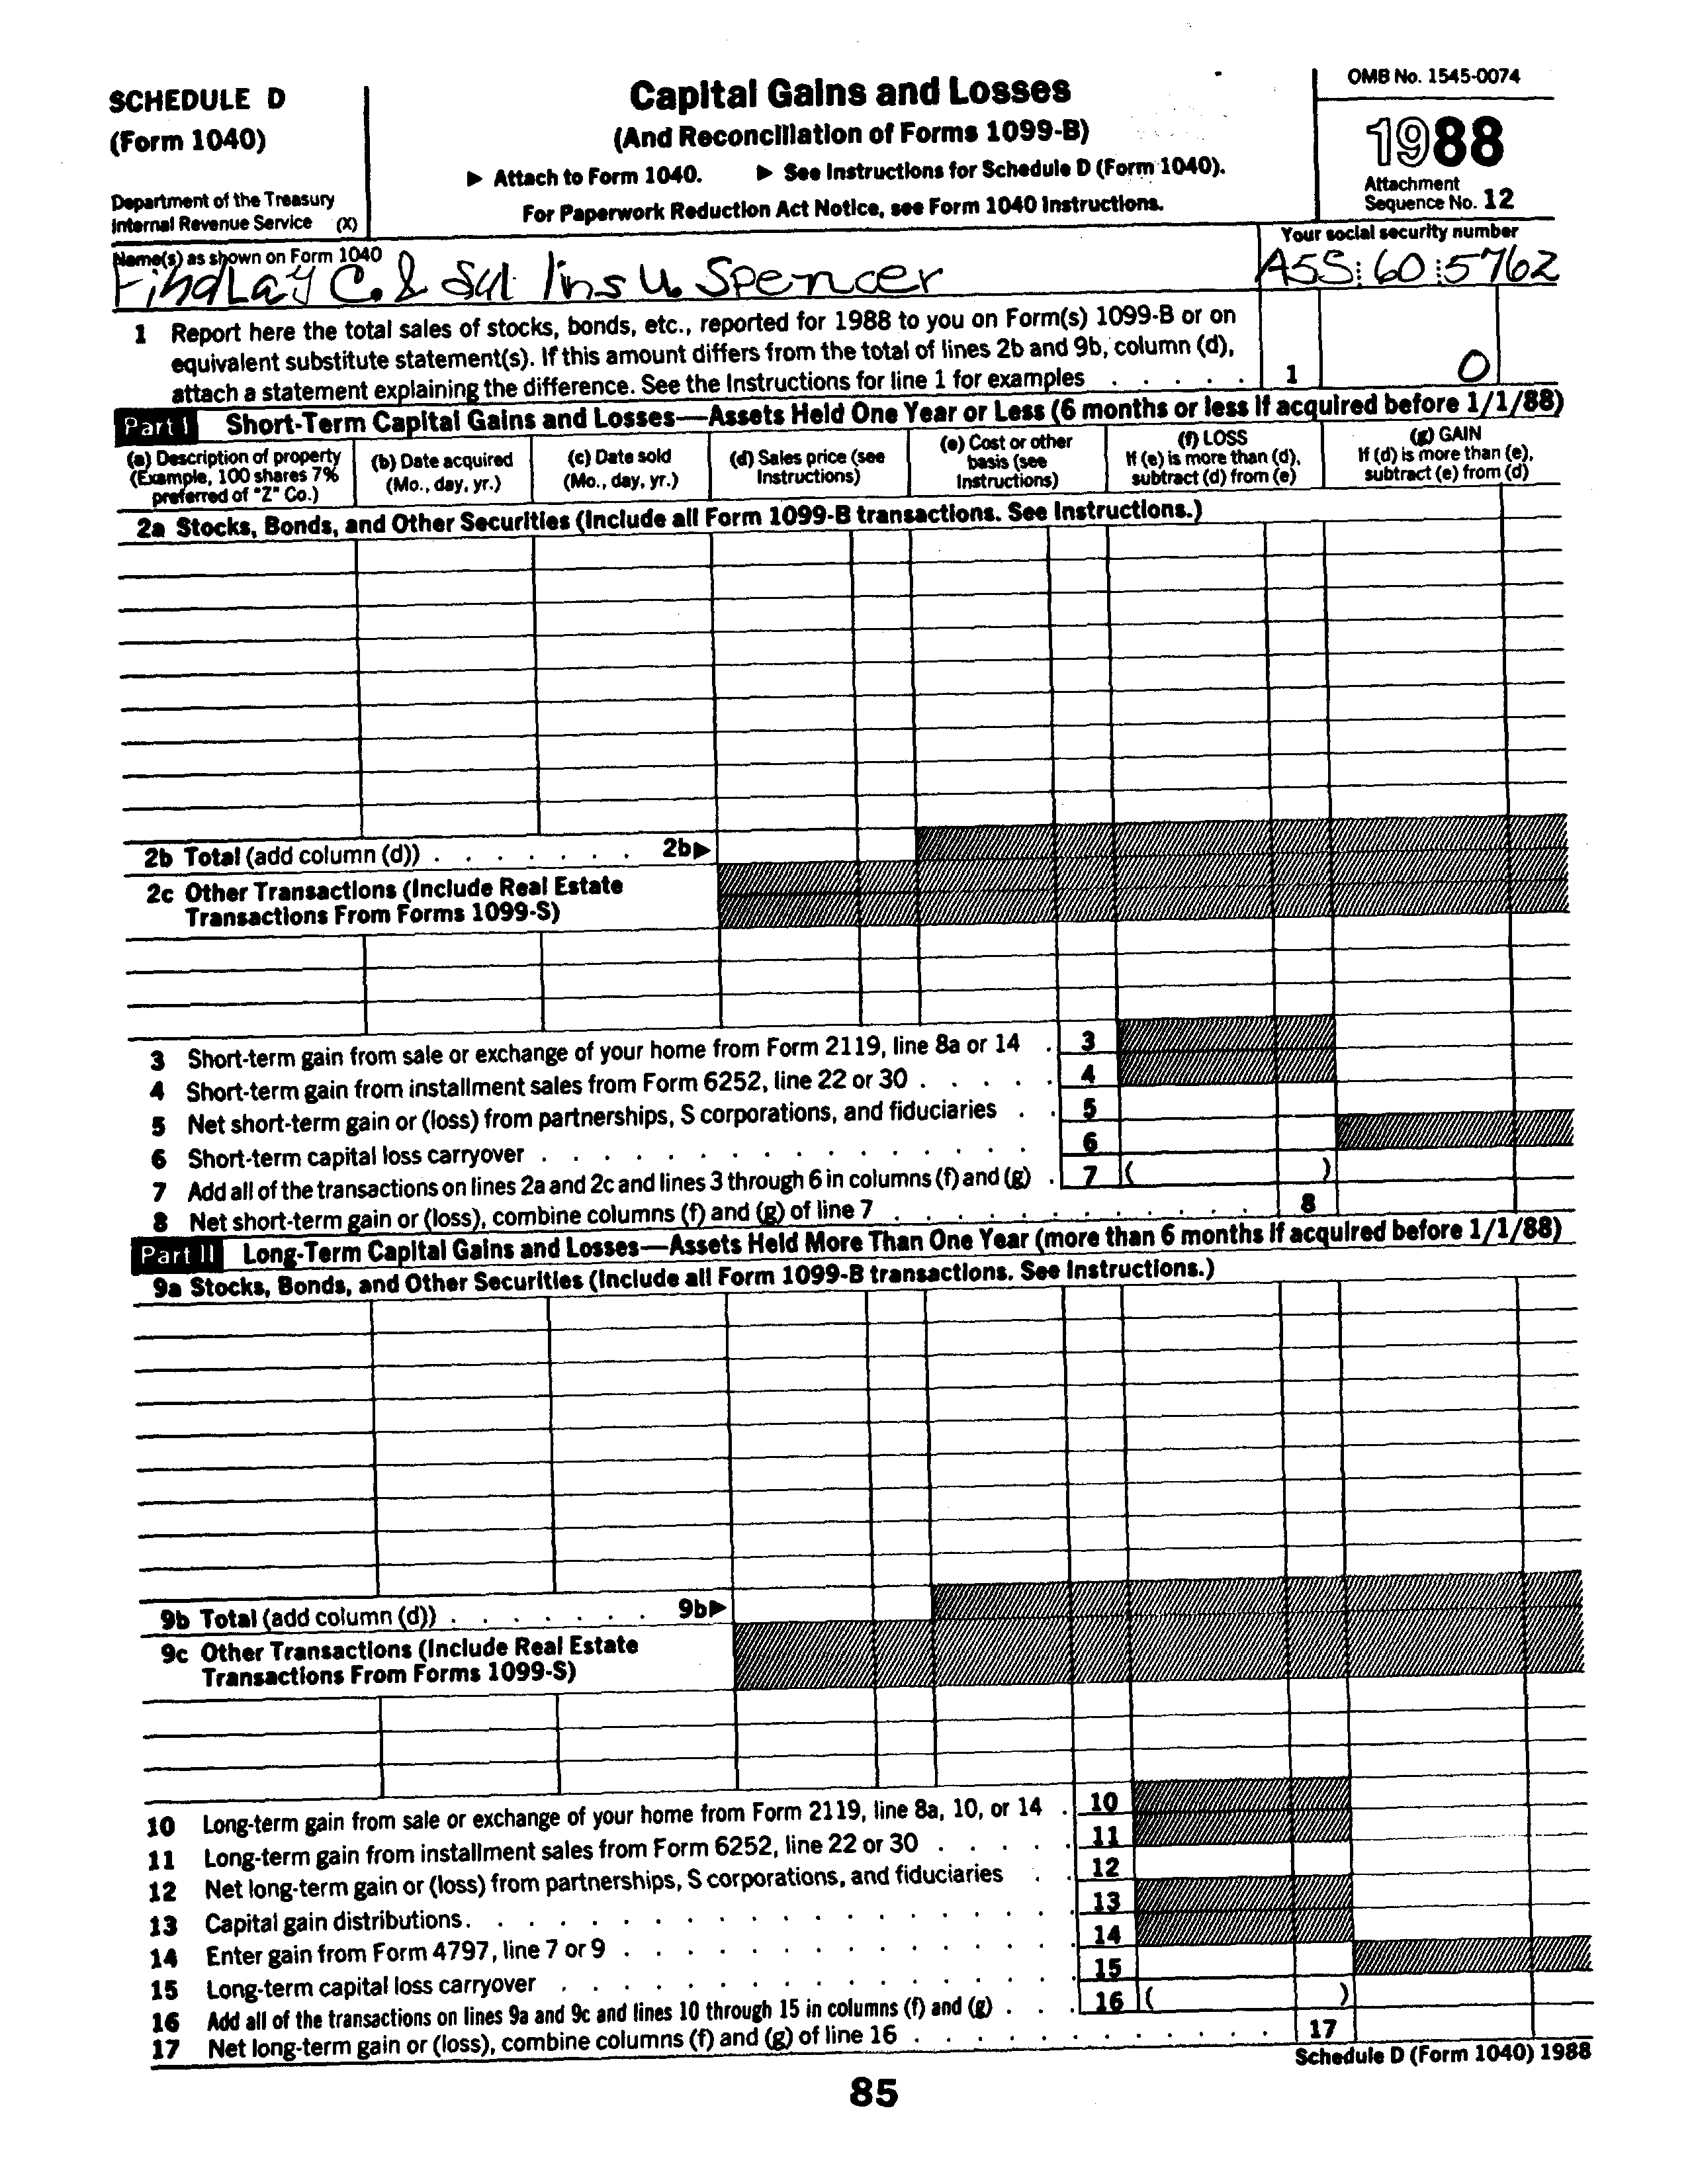 SCHEDULE D
(Form 1040)
Department of the Treasury
Internal Revenue Service (X)
Capital Gains and Losses
(And Reconciliation of Forms 1099-B)
▶ Attach to Form 1040. ▶ See Instructions for Schedule D (Form 1040).
For Paperwork Reduction Act Notice, see Form 1040 Instructions.
OMB No. 1545-0074
1988
Attachment
Sequence No. 12
Name(s) as shown on Form 1040
Your social security number
FindLay C. & Sul lins U. Spencer
ASS:60:5762
1 Report here the total sales of stocks, bonds, etc., reported for 1988 to you on Form(s) 1099-B or on
equivalent substitute statement(s). If this amount differs from the total of lines 2b and 9b, column (d),
attach a statement explaining the difference. See the Instructions for line 1 for examples . . . . . 1 0
Part I Short-Term Capital Gains and Losses—Assets Held One Year or Less (6 months or less if acquired before 1/1/88)
(a) Description of property
(Example, 100 shares 7%
preferred of "Z" Co.)
(b) Date acquired
(Mo., day, yr.)
(c) Date sold
(Mo., day, yr.)
(d) Sales price (see
Instructions)
(e) Cost or other
basis (see
Instructions)
(f) LOSS
If (e) is more than (d),
subtract (d) from (e)
(g) GAIN
If (d) is more than (e),
subtract (e) from (d)
2a Stocks, Bonds, and Other Securities (Include all Form 1099-B transactions. See Instructions.)
2b Total (add column (d)) . . . . . . . 2b▶
2c Other Transactions (Include Real Estate
Transactions From Forms 1099-S)
3 Short-term gain from sale or exchange of your home from Form 2119, line 8a or 14 . 3
4 Short-term gain from installment sales from Form 6252, line 22 or 30 . . . . . 4
5 Net short-term gain or (loss) from partnerships, S corporations, and fiduciaries . . 5
6 Short-term capital loss carryover . . . . . . . . . . . . . . . 6
7 Add all of the transactions on lines 2a and 2c and lines 3 through 6 in columns (f) and (g) . 7 ( )
8 Net short-term gain or (loss), combine columns (f) and (g) of line 7 . . . . . . . . . . . . 8
Part II Long-Term Capital Gains and Losses—Assets Held More Than One Year (more than 6 months if acquired before 1/1/88)
9a Stocks, Bonds, and Other Securities (Include all Form 1099-B transactions. See Instructions.)
9b Total (add column (d)) . . . . . . . 9b▶
9c Other Transactions (Include Real Estate
Transactions From Forms 1099-S)
10 Long-term gain from sale or exchange of your home from Form 2119, line 8a, 10, or 14 . 10
11 Long-term gain from installment sales from Form 6252, line 22 or 30 . . . . . 11
12 Net long-term gain or (loss) from partnerships, S corporations, and fiduciaries . . 12
13 Capital gain distributions. . . . . . . . . . . . . . . . . . 13
14 Enter gain from Form 4797, line 7 or 9 . . . . . . . . . . . . . 14
15 Long-term capital loss carryover . . . . . . . . . . . . . . . 15
16 Add all of the transactions on lines 9a and 9c and lines 10 through 15 in columns (f) and (g) . . . 16 ( )
17 Net long-term gain or (loss), combine columns (f) and (g) of line 16 . . . . . . . . . . . . 17
Schedule D (Form 1040) 1988
85